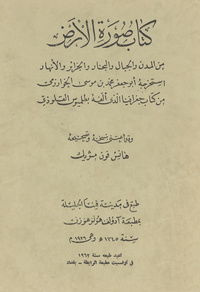 كتاب صورة الأرض
من المدن والجبال والبحار والجزائر والأنهار
استخرجه أبو جعفر محمد بن موسى الخوارزمي
من كتاب جغرافيا الذي ألفه بطلميوس القلوذي
وقد اعتنى بنسخه وتصحيحه
هانس فون مژيك
طبع في مدينة فينا الجليلة
بمطبعة آدولف هولزهوزن
سنة ١٣٤٥ ه‍ وهي ١٩٢٦ م
اعيد طبعه سنة ١٩٦٢
في اوفسيت مطبعة الرابطة - بغداد